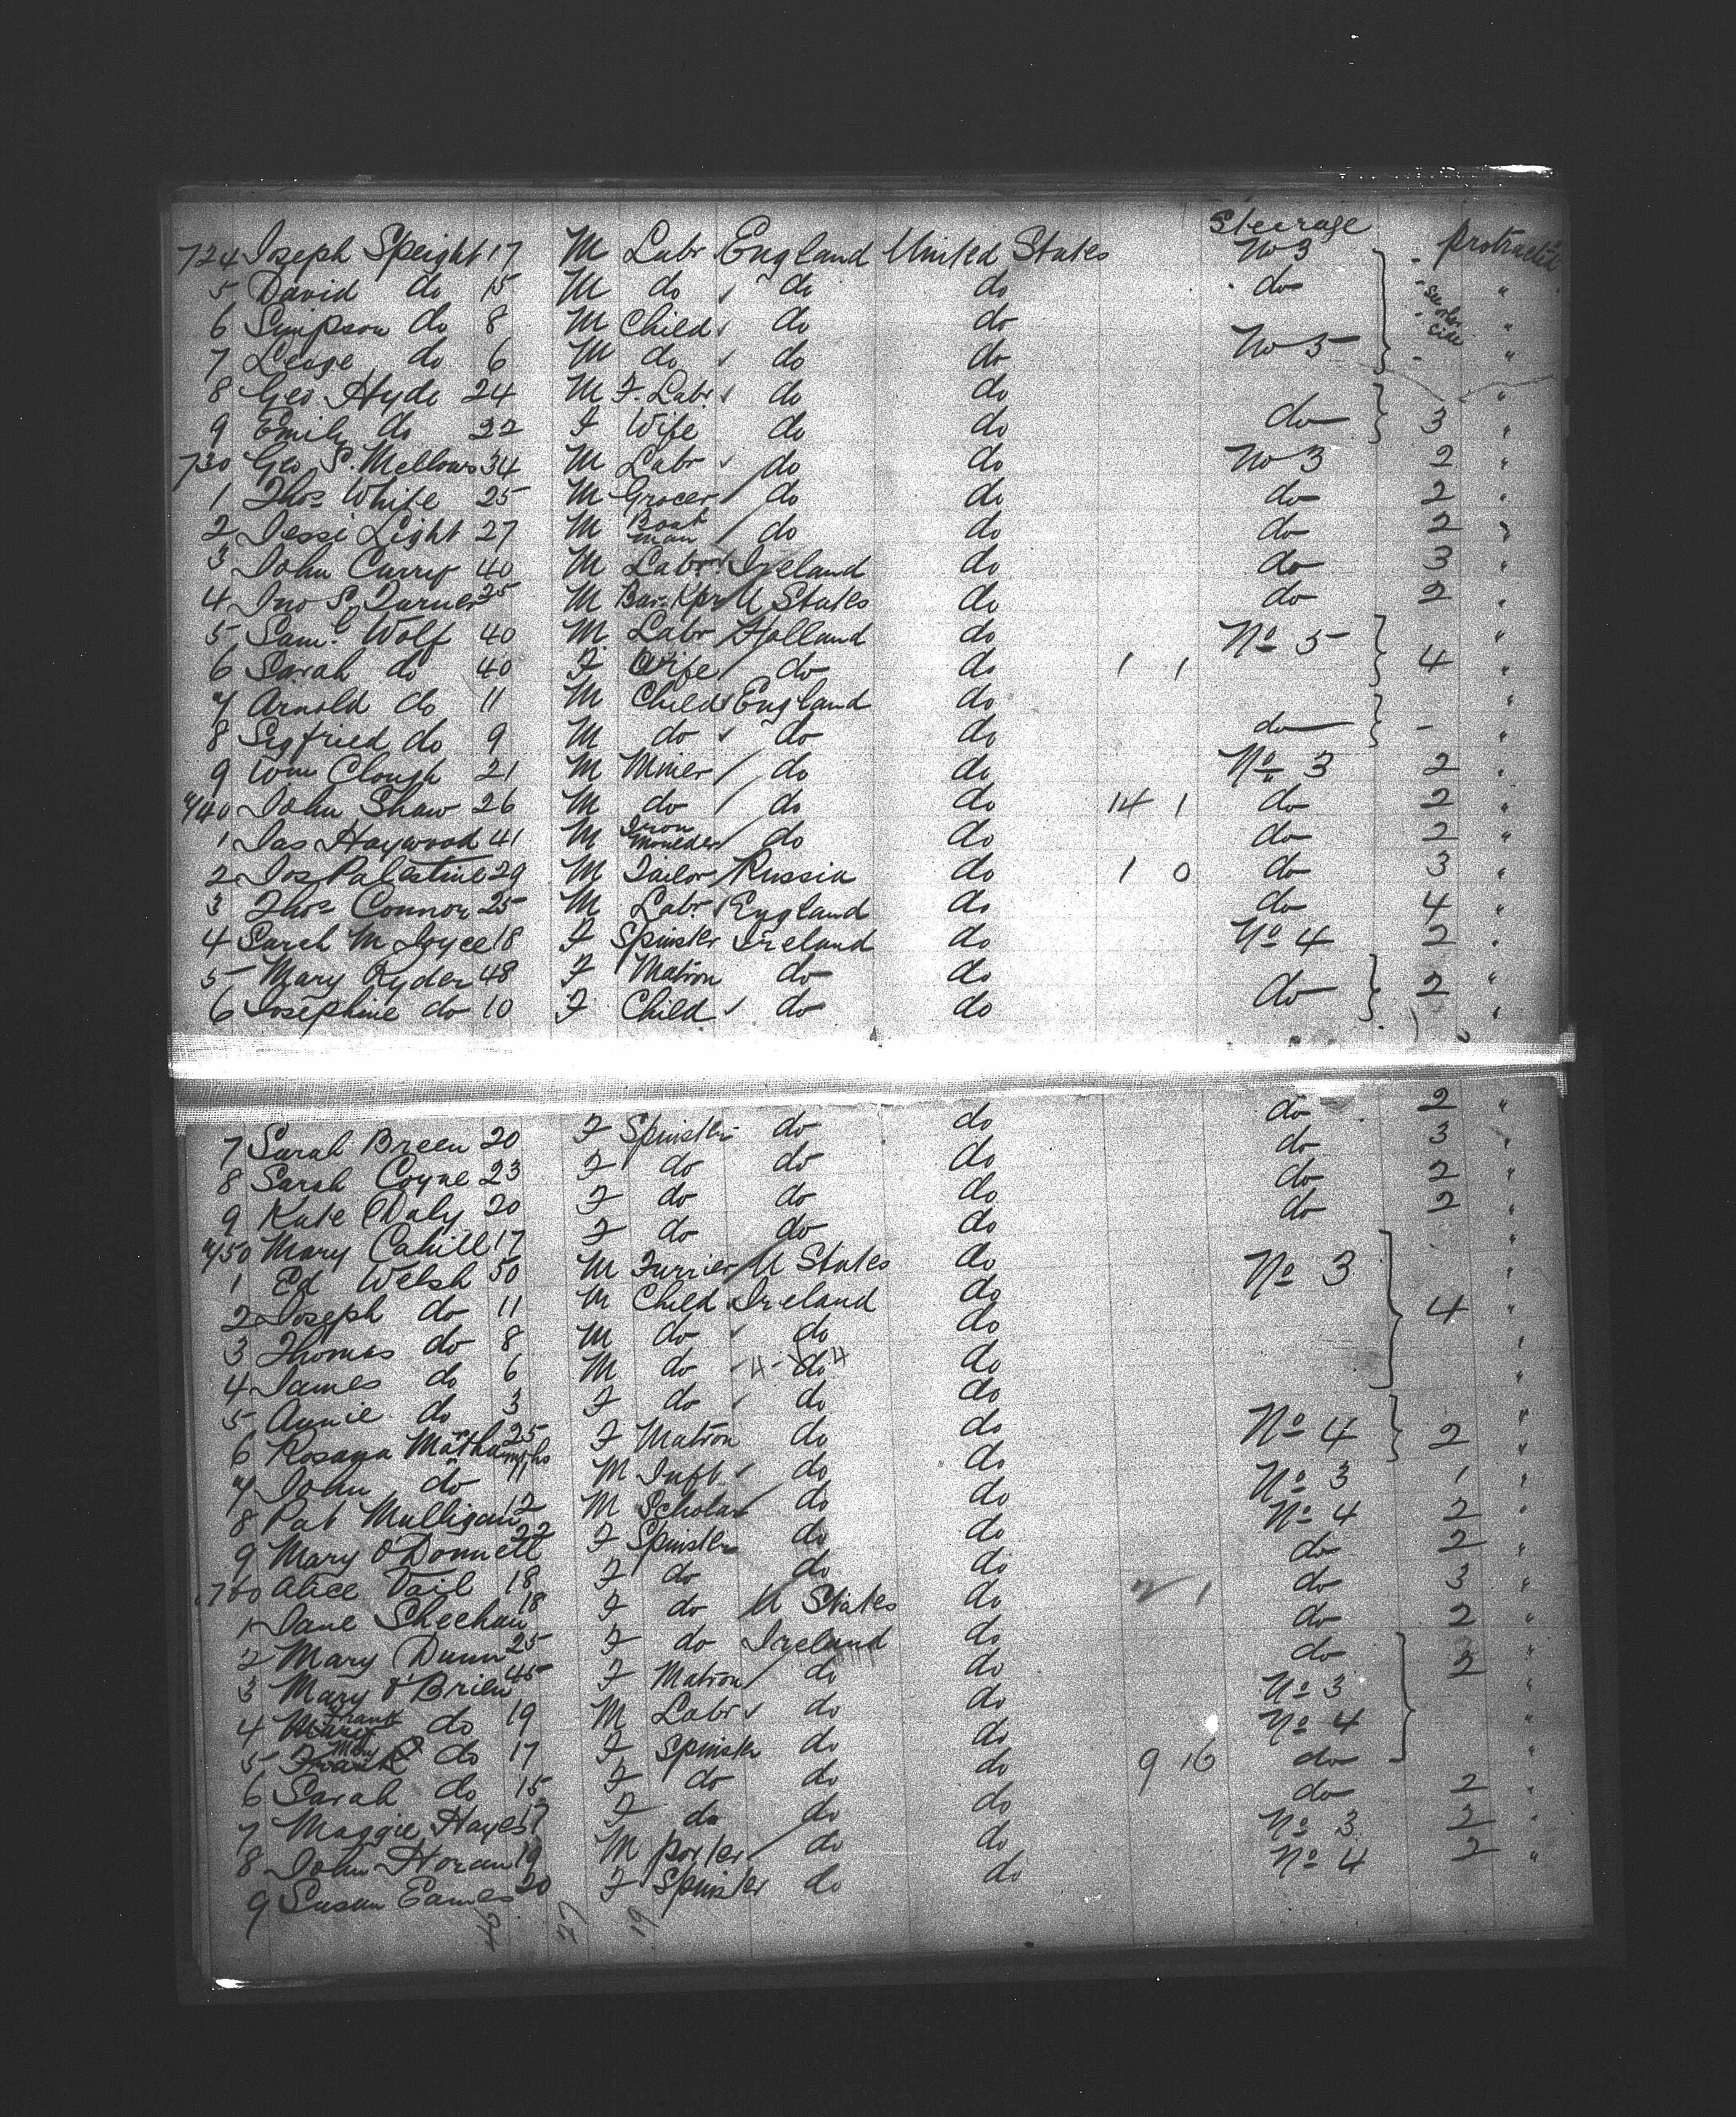 Steerage
724 Joseph Speight 17 M Labr England United States No 3 protracted
5 David do 15 M do do do do "
6 Simpson do 8 M Child do do "
7 do 6 M do do do No 5 "
8 Geo. Hyde 24 M F. Labr do do "
9 Emily do 22 F Wife do do do 3 "
730 Geo S. Mellows 34 M Labr do do No 3 2 "
1 Thos White 25 M Grocer do do do 2 "
2 Jessi Light 27 M Boat man do do do 2 "
3 John Curry 40 M Labr Ireland do do 3 "
4 Jno S. Turner 25 M Bar. Kpr U States do do 2 "
5 Saml Wolf 40 M Labr Holland do No 5 "
6 Sarah do 40 F Wife do do 1 1 4 "
7 Arnold do 11 M Child England do "
8 Sigfried do 9 M do do do do - "
9 Wm Clough 21 M Miner do do No 3 2 "
740 John Shaw 26 M do do do 14 1 do 2 "
1 Jas Haywood 41 M Iron Moulder do do do 2 "
2 Jos Palestine 29 M Tailor Russia do 1 0 do 3 "
3 Thos Connor 25 M Labr England do do 4 "
4 Sarah M Joyce 18 F Spinster Ireland do No 4 2 "
5 Mary Ryder 48 F Matron do do do 2 "
6 Josephine do 10 F Child do do "
7 Sarah Breen 20 F Spinster do do do 2 "
8 Sarah Coyne 23 F do do do do 3 "
9 Kate Daly 20 F do do do do 2 "
750 Mary Cahill 17 F do do do do 2 "
1 Ed Welsh 50 M Furrier U States do No 3 "
2 Joseph do 11 M Child Ireland do "
3 Thomas do 8 M do do do 4 "
4 James do 6 M do do do "
5 Annie do 3 F do do do "
6 Rosana 25 F Matron do do No 4 2 "
7 John do 11 mths M Inft do do "
8 Pat Mulligan 12 M Scholar do do No 3 1 "
9 Mary O'Donnell 22 F Spinster do do No 4 2 "
760 Alice Vail 18 F do do do do 2 "
1 Jane Sheehan 18 F do U States do 2 1 do 3 "
2 Mary Dunn 25 F do Ireland do do 2 "
3 Mary O'Brien 45 F Matron do do do 3 "
4 Frank do 19 M Labr do do No 3 "
5 Mary do 17 F Spinster do do No 4 "
6 Sarah do 15 F do do do 9 16 do "
7 Maggie Hayes 17 F do do do do 2 "
8 John Horan 19 M porter do do No 3 2 "
9 Susan Eames 20 F Spinster do do No 4 2 "
27 19